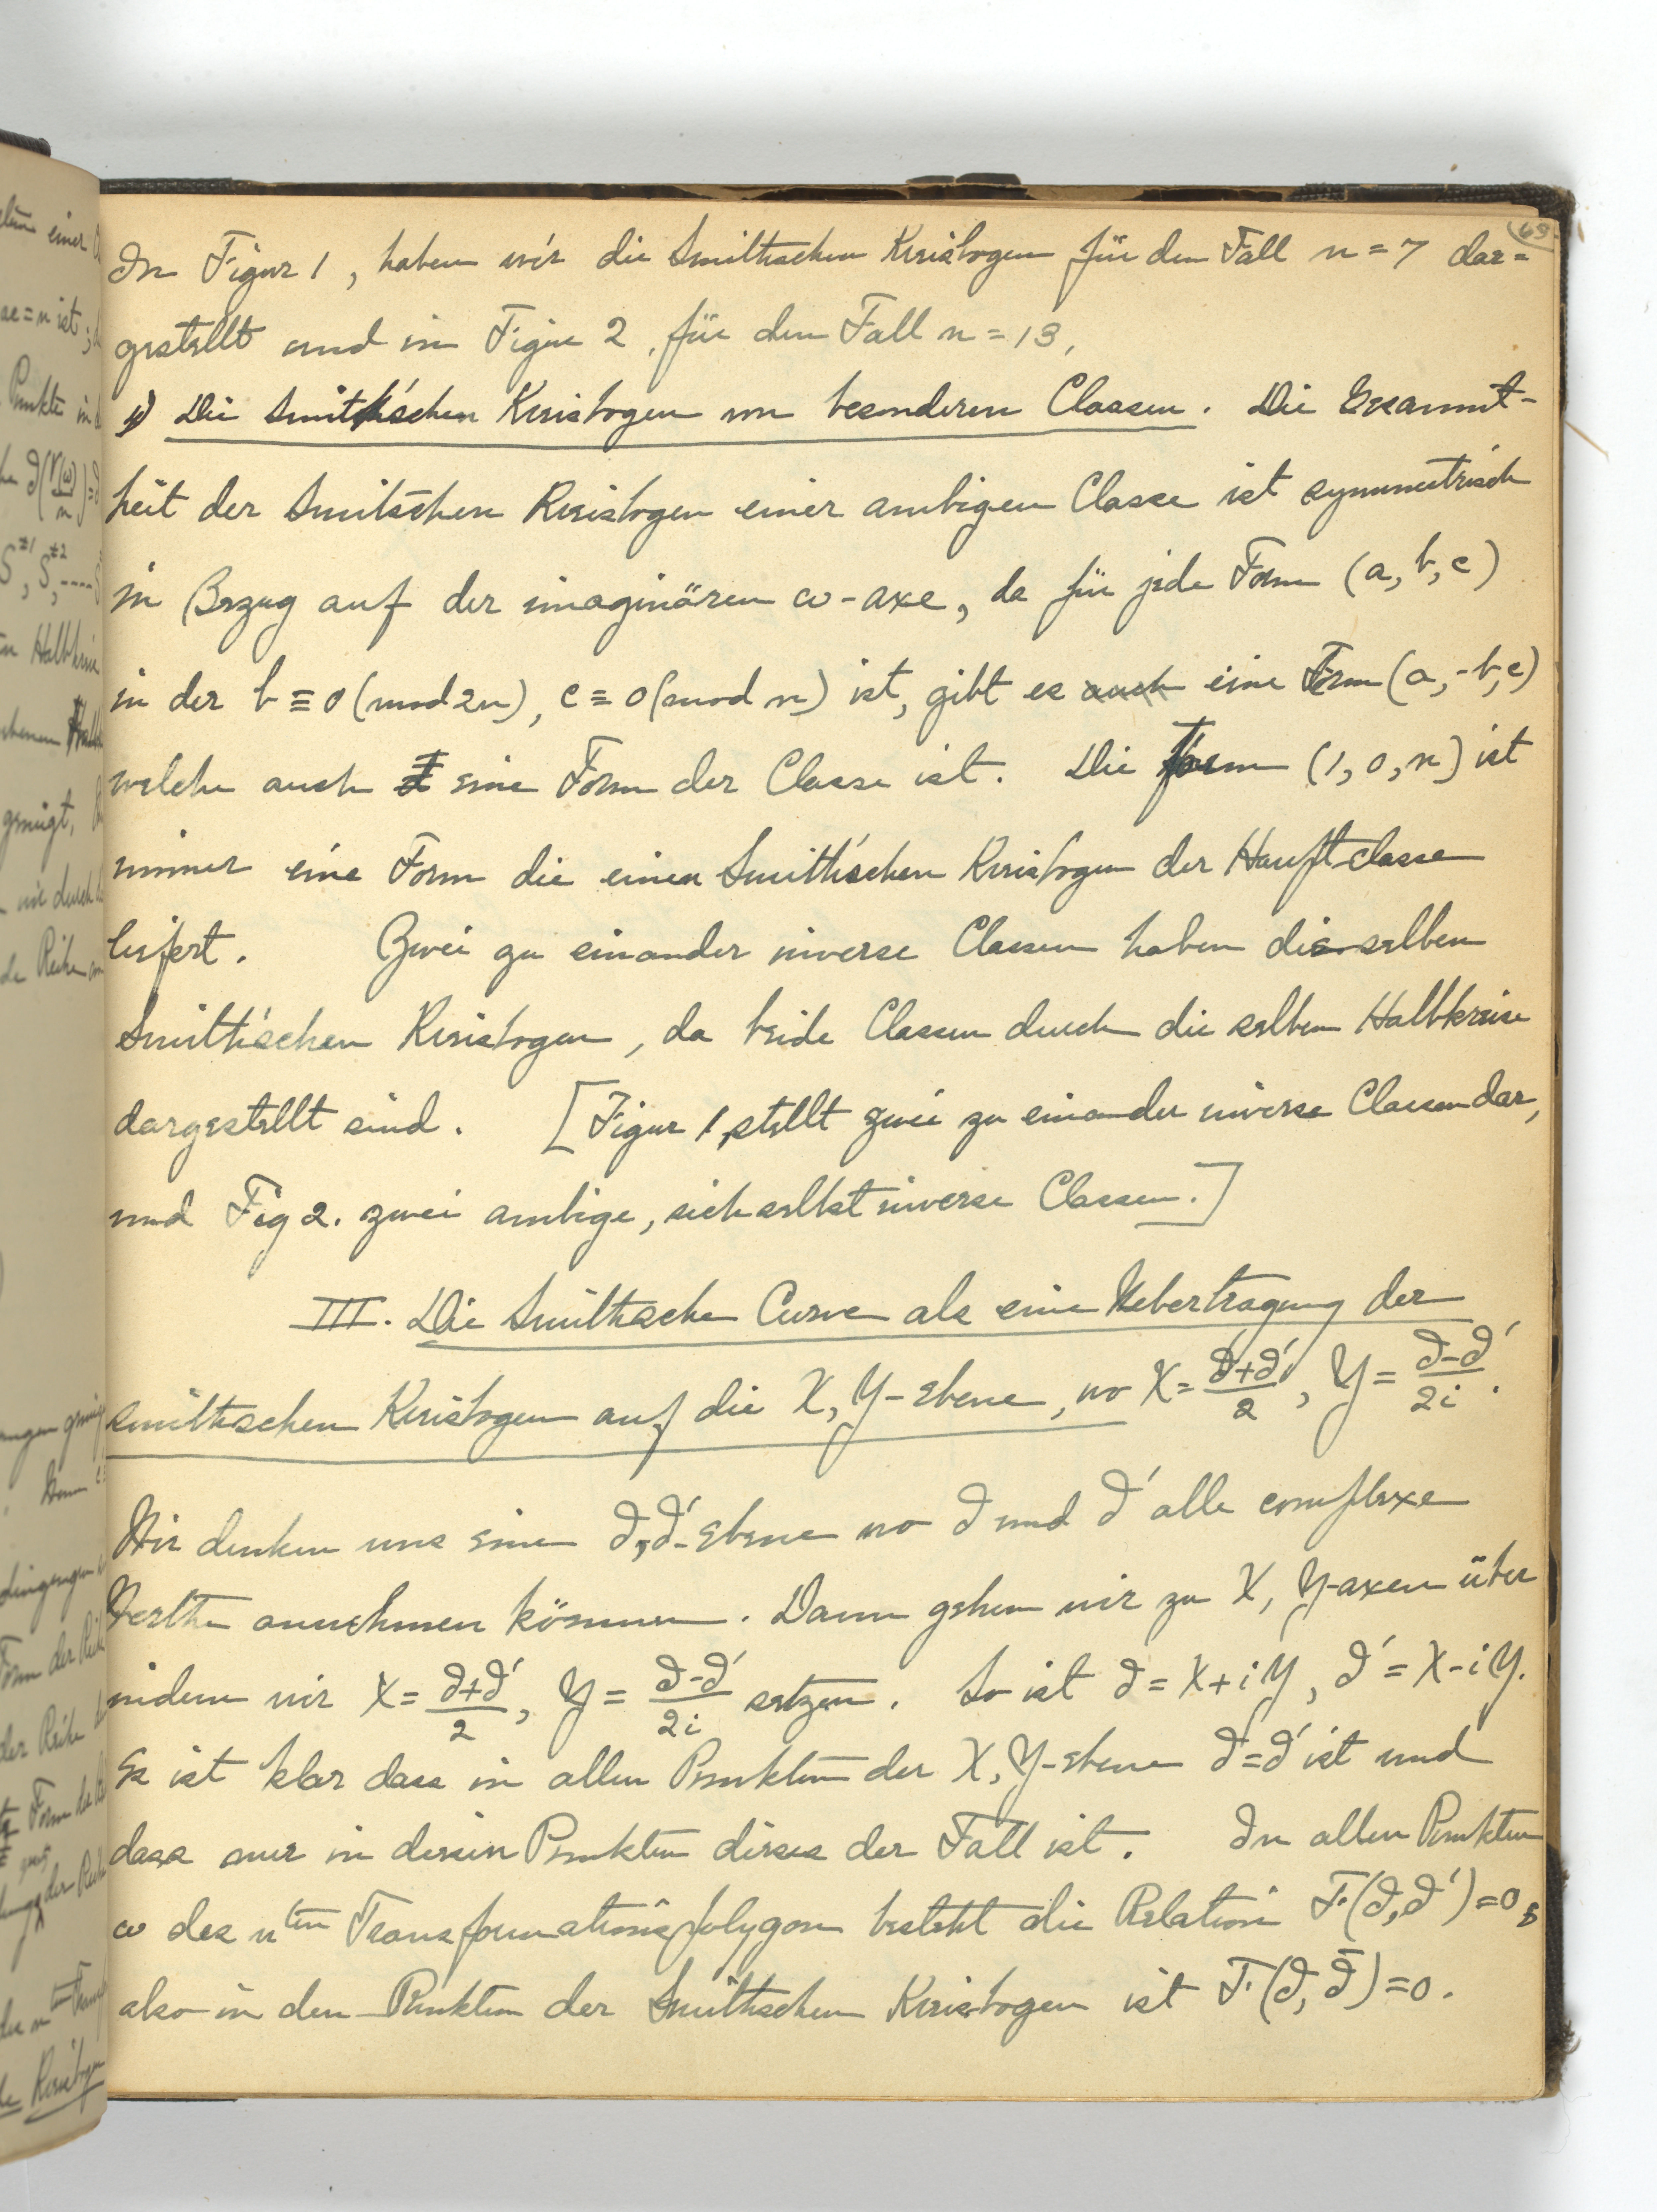 69
In Figur 1, haben wir die Smithschen Kreisbogen für den Fall n = 7 dar=
gestellt und in Figur 2, für den Fall n = 13,
Die Smith'schen Kreisbogen von besonderen Classen. Die Gesammt-
heit der Smitschen Kreisbogen einer ambigen Classe ist symmetrisch
in Bezug auf der imaginären ω-axe, da für jede Form (a, b, c)
in der b ≡ 0 (mod 2n), c ≡ 0 (mod n) ist, gibt es auch eine Form (a, -b, c)
welche auch eine Form der Classe ist. Die Form (1, 0, n) ist
immer eine Form die einen Smith'schen Kreisbogen der Hauptclasse
liefert. Zwei zu einander inverse Classen haben dieselben
Smith'schen Kreisbogen, da beide Classen durch die selben Halbkreise
dargestellt sind. [Figur 1, stellt zwei zu einander inverse Classen dar,
und Fig 2. zwei ambige, sich selbst inverse Classen.]
III. Die Smithsche Curve als eine Uebertragung der
smithschen Kreisbogen auf die X, Y-ebene, wo X = (∂+∂')/2, Y = (∂-∂')/2i.
Wir denken uns eine ∂,∂'-Ebene wo ∂ und ∂' alle complexe
Werthe annehmen können. Dann gehen wir zu X, Y-axen über
indem wir X = (∂+∂')/2, Y = (∂-∂')/2i setzen. So ist ∂ = X+iY, ∂' = X-iY.
Es ist klar dass in allen Punkten der X, Y-ebene ∂̄=∂' ist und
dass nur in diesen Punkten dieses der Fall ist. In allen Punkten
ω des nten Transformationspolygon besteht die Relation F(∂,∂')=0,
also in den Punkten der Smithschen Kreisbogen ist F(∂,∂̄)=0.